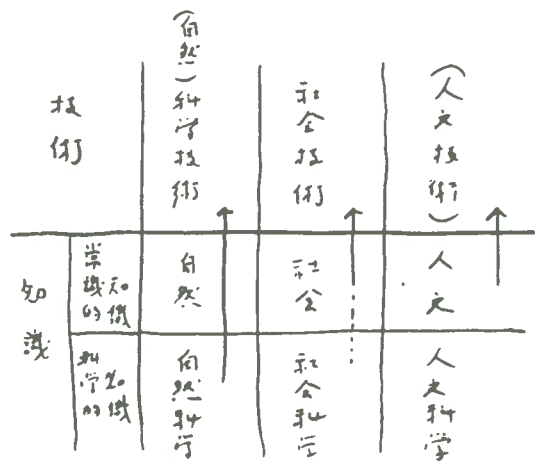 技術
(自然)科学技術
社会技術
(人文技術)
知識
常識的知識
自然
社会
人文
科学的知識
自然科学
社会科学
人文科学